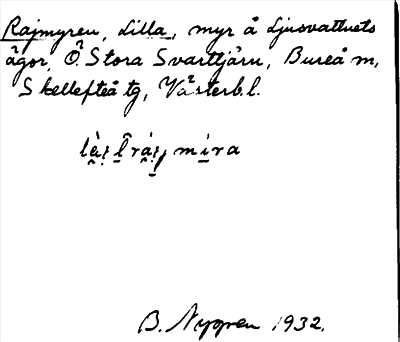 Rajmyren, Lilla, myr å Ljusvattnets
ägor, Ö. Stora Svarttjärn, Bureå sn,
Skellefteå tg, Västerb.l.
mira
B. Nygren 1932.